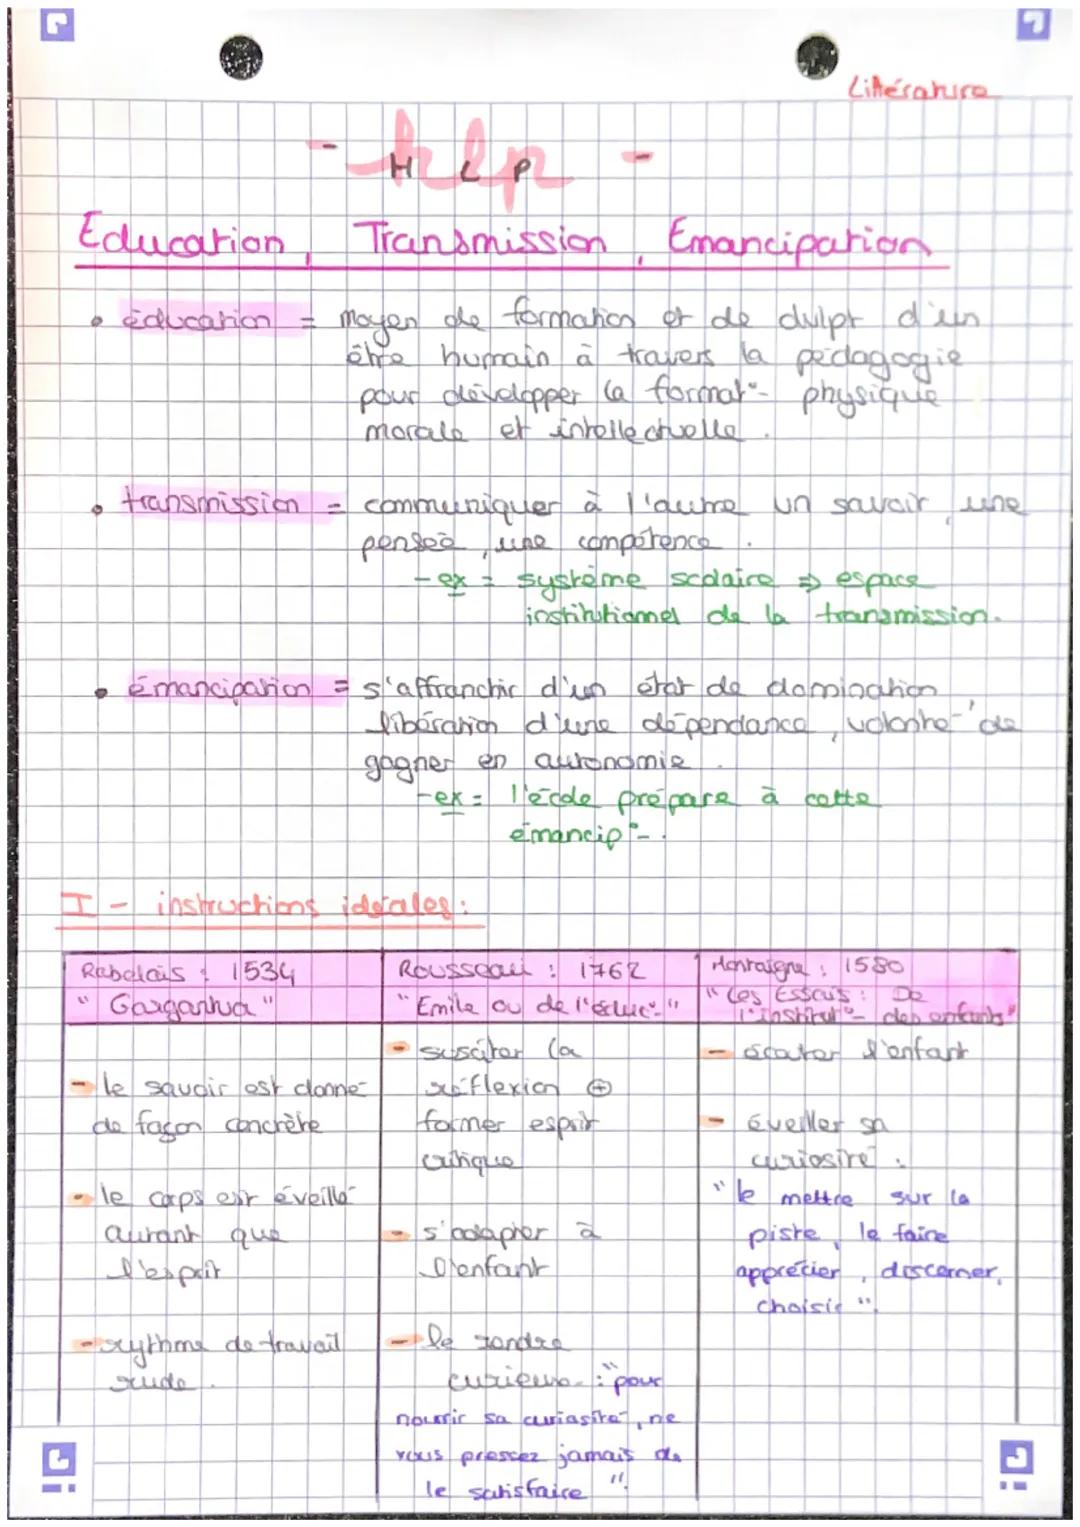 Littérature
- help -
H L P
Education, Transmission, Emancipation
• éducation = moyen de formation et de dvlpt d'un
être humain à travers la pédagogie
pour développer la format°- physique
morale et intellectuelle.
• transmission = communiquer à l'autre un savoir, une
pensée, une compétence.
- ex = système scolaire ⇒ espace
institutionnel de la transmission.
• émancipation = s'affranchir d'un état de domination,
libération d'une dépendance, volonté de
gagner en autonomie.
- ex = l'école prépare à cette
émancip°-.
I - instructions idéales :
Rabelais : 1534
"Gargantua"
- le savoir est donné
de façon concrète
- le corps est éveillé
autant que
l'esprit
- rythme de travail
rude.
Rousseau : 1762
"Emile ou de l'éduc°-"
- susciter la
réflexion ⊕
former esprit
critique
- s'adapter à
l'enfant
- le rendre
curieux : "pour
nourrir sa curiosité, ne
vous pressez jamais de
le satisfaire".
Montaigne : 1580
"Les Essais : De
l'institut°- des enfants"
- écouter l'enfant
- éveiller sa
curiosité :
"le mettre sur la
piste, le faire
apprécier, discerner,
choisir".